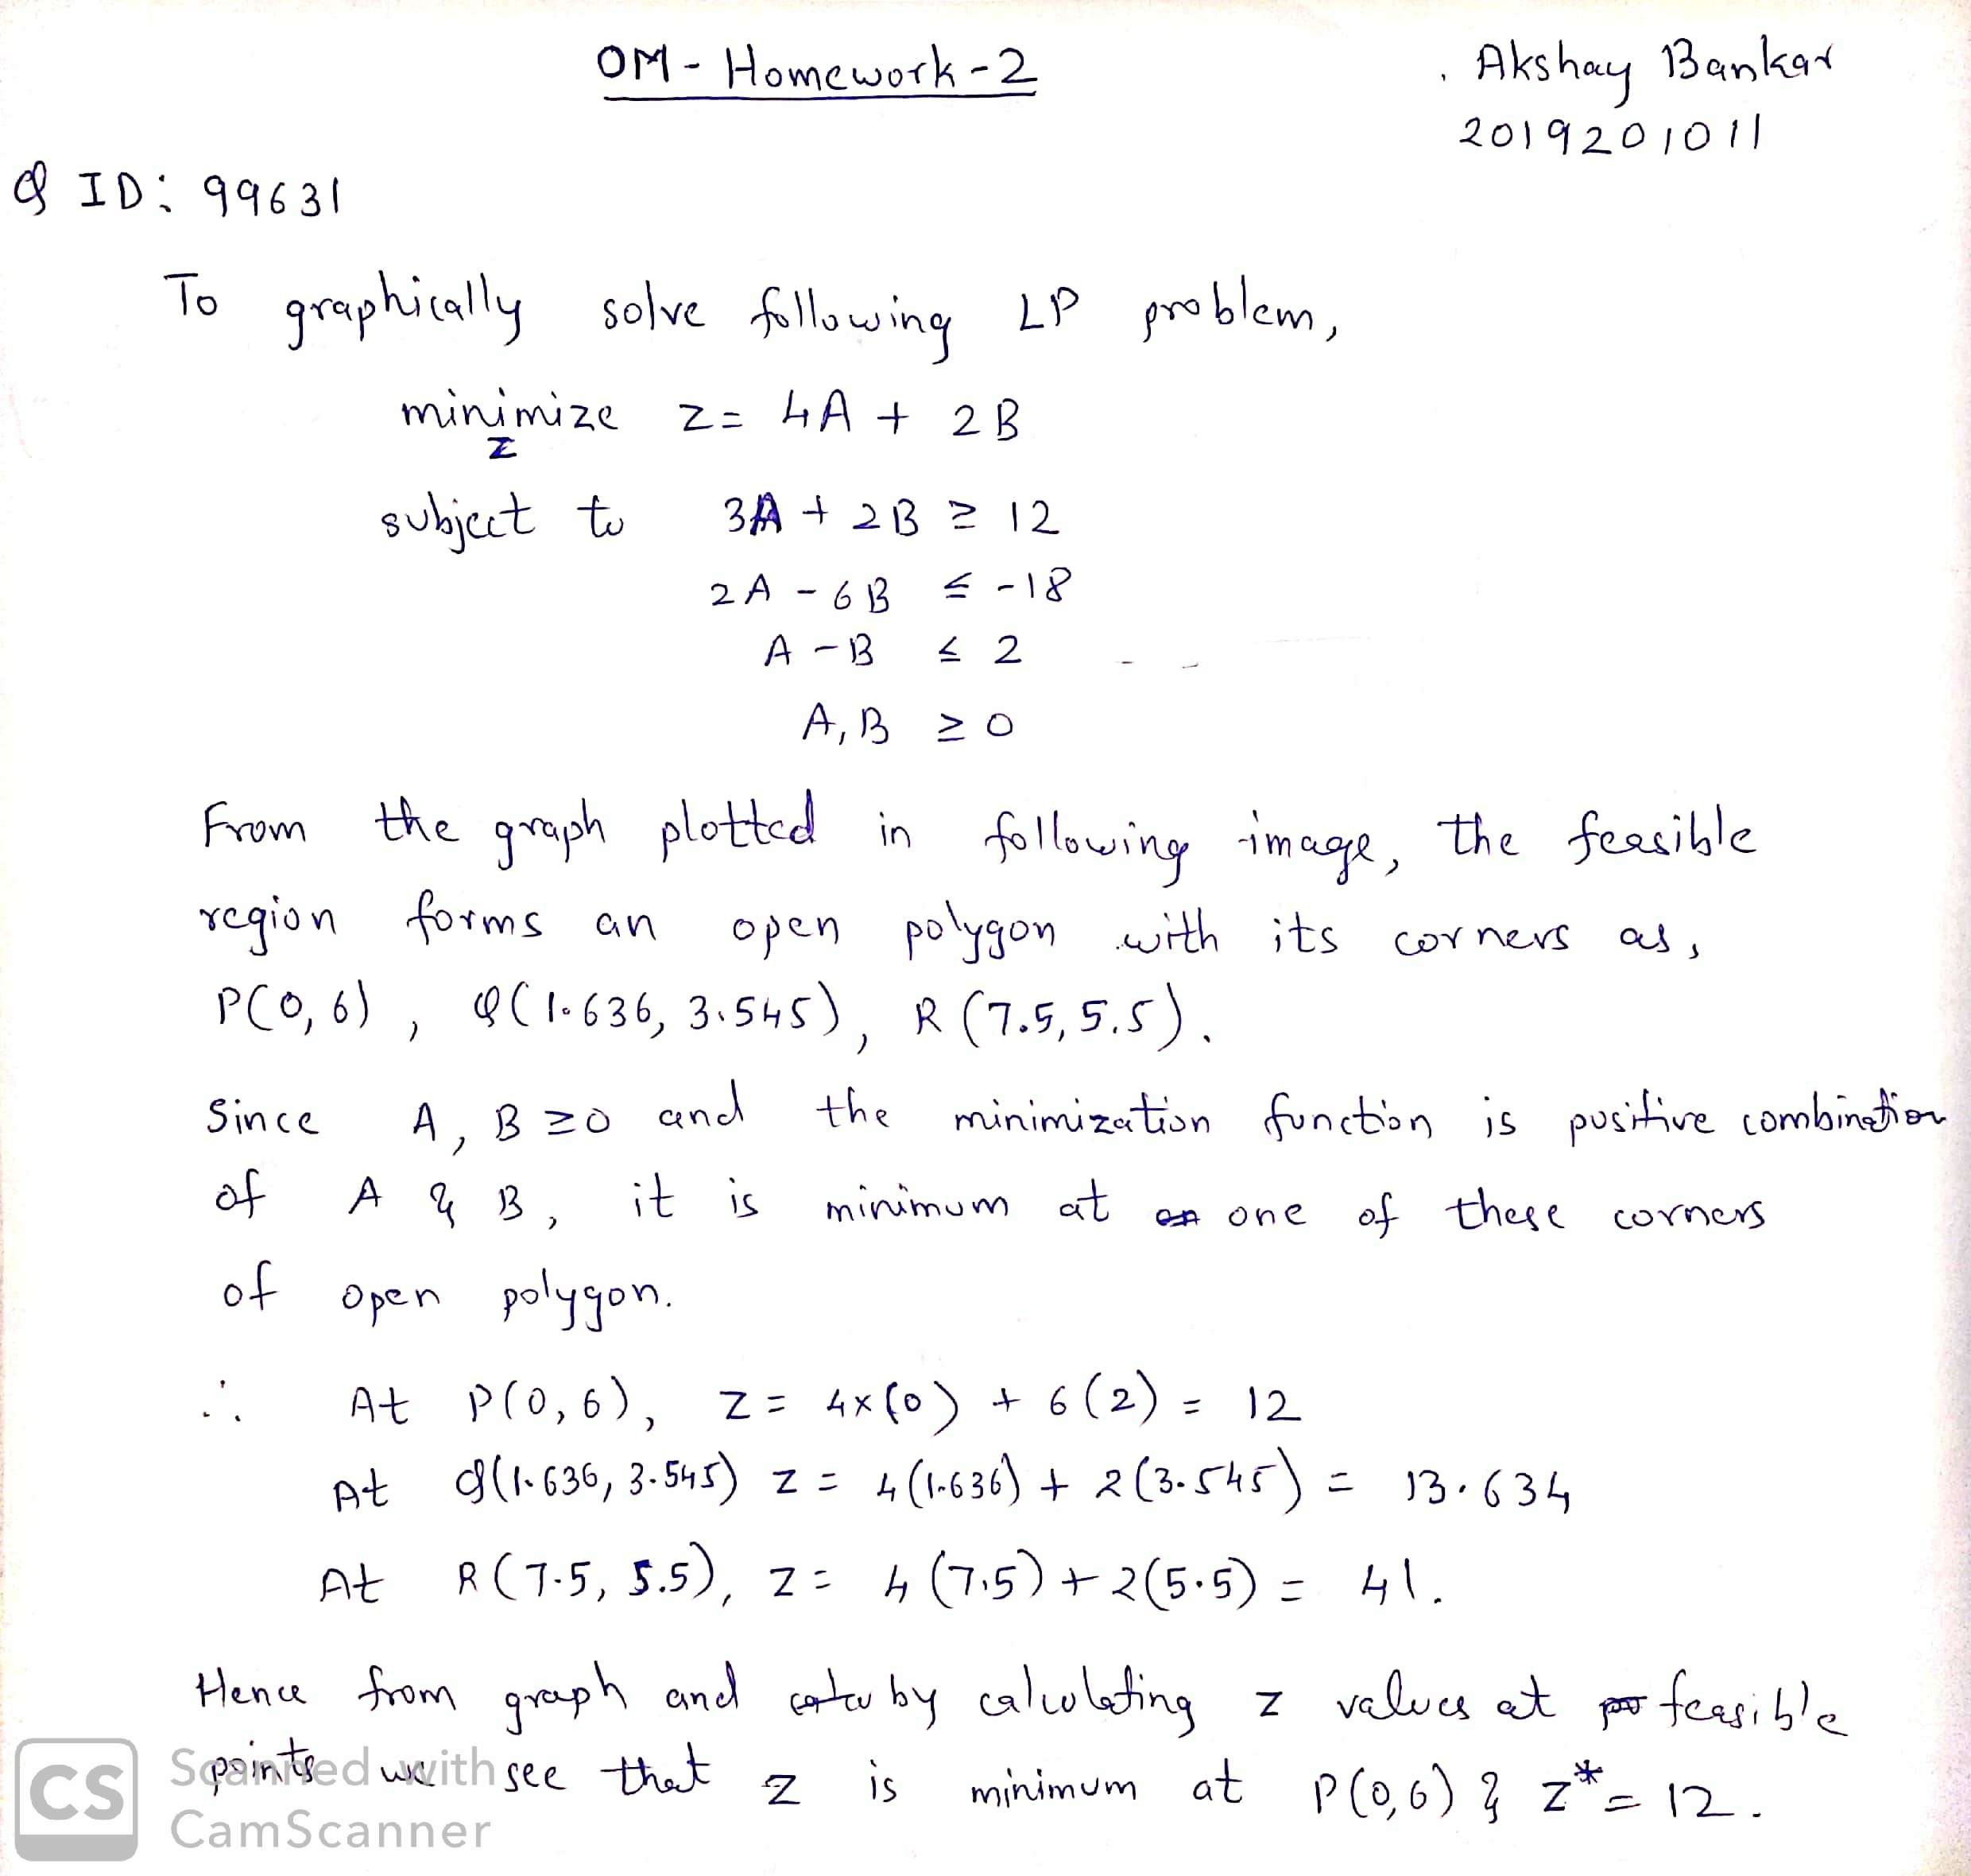 OM - Homework - 2
Akshay Bankar
2019201011
Q ID: 99631
To graphically solve following LP problem,
minimize z = 4A + 2B
z
subject to 3A + 2B ≥ 12
2A - 6B ≤ -18
A - B ≤ 2
A, B ≥ 0
From the graph plotted in following image, the feasible
region forms an open polygon with its corners as,
P(0,6), Q(1.636, 3.545), R(7.5, 5.5).
Since A, B ≥ 0 and the minimization function is positive combination
of A & B, it is minimum at one of these corners
of open polygon.
∴ At P(0,6), z = 4×(0) + 6(2) = 12
At Q(1.636, 3.545) z = 4(1.636) + 2(3.545) = 13.634
At R(7.5, 5.5), z = 4(7.5) + 2(5.5) = 41.
Hence from graph and by calculating z values at feasible
points we see that z is minimum at P(0,6) & z* = 12.
CS Scanned with
CamScanner